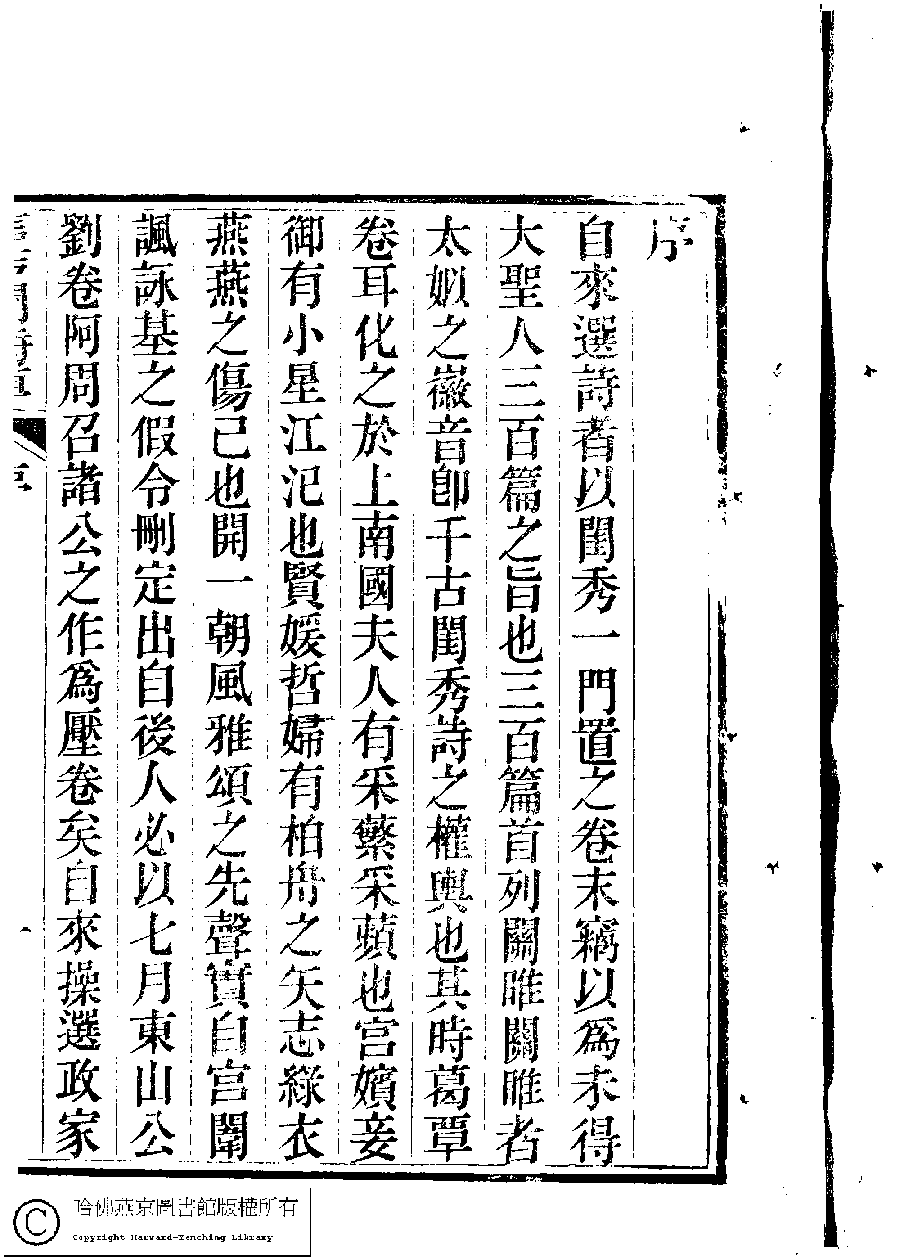 序
自來選詩者以閨秀一門置之卷末竊以爲未得
大聖人三百篇之旨也三百篇首列關雎關雎者
太姒之徽音卽千古閨秀詩之權輿也其時葛覃
卷耳化之於上南國夫人有采蘩采蘋也宮嬪妾
御有小星江汜也賢媛哲婦有柏舟之矢志綠衣
燕燕之傷己也開一朝風雅頌之先聲實自宮闈
諷詠基之假令刪定出自後人必以七月東山公
劉卷阿周召諸公之作爲壓卷矣自來操選政家
哈佛燕京圖書館版權所有
Copyright Harvard-Yenching Library